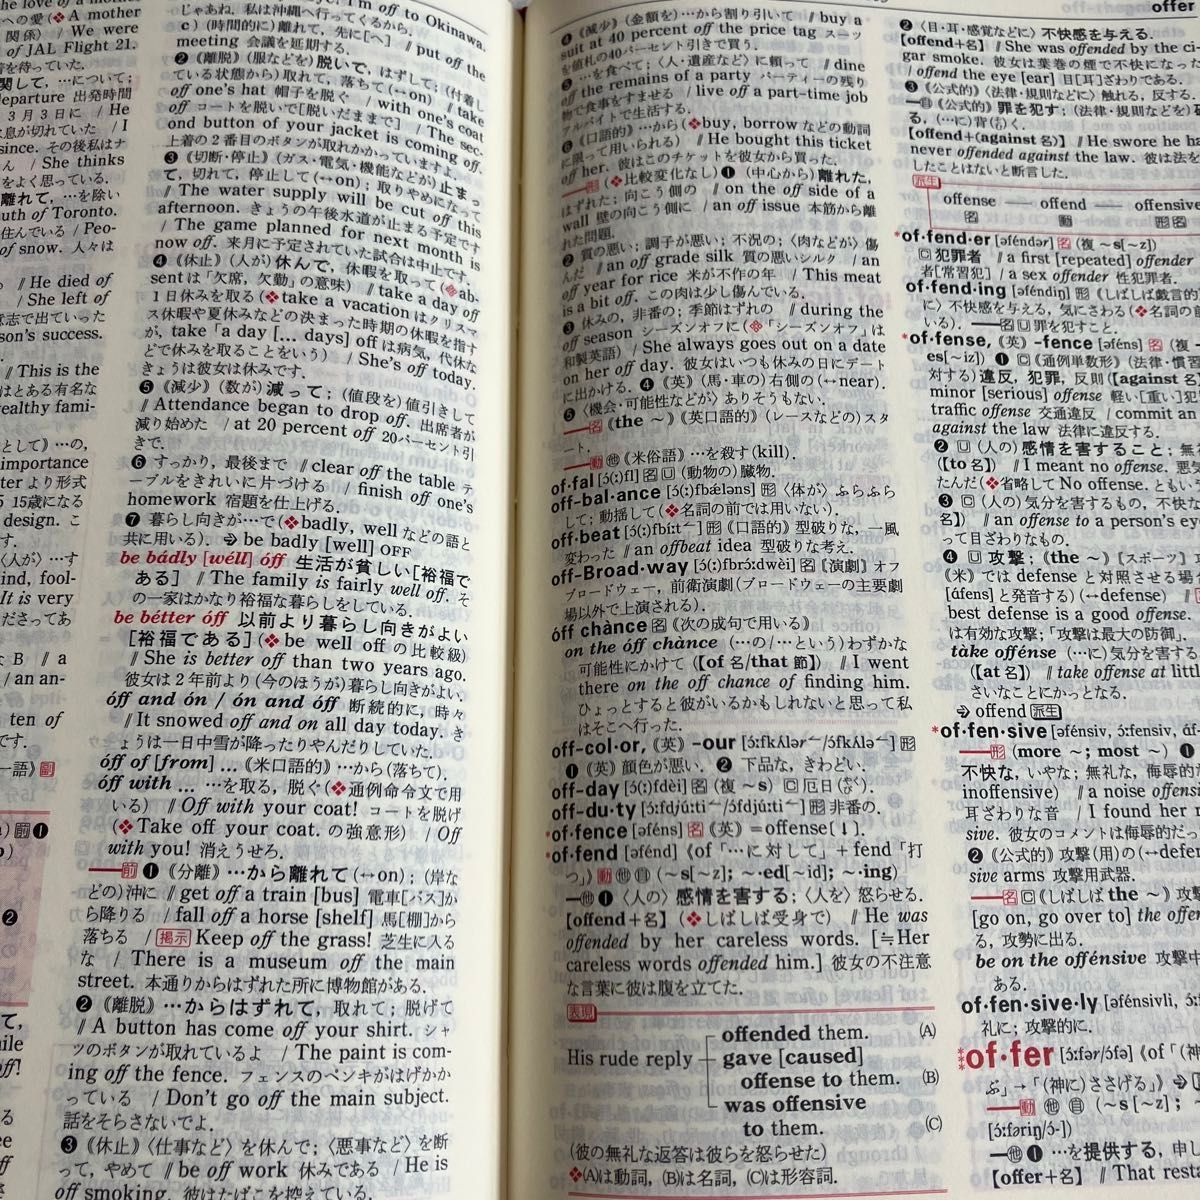 the love of a mother
への愛(❖A mother
関係) / We were
of JAL Flight 21.
を待っていた.
関して, …について;
departure 出発時間
3月3日に / He
は息が切れていた / I
since. その後私はナ
ん / She thinks
をよく思っている.
離れて, …を除い
uth of Toronto.
住んでいる / Peo-
of snow. 人々は
/ He died of
/ She left of
意志で出ていった
on's success.
/ This is the
はとある有名な
ealthy fami-
importance
15歳になる
design. こ
ind, fool-
It is very
B ∥ a
/ an an-
ten of
I'm off to Okinawa.
じゃあね. 私は沖縄へ行ってくるから.
c) (時間的に)離れて, 先に[へ] ∥ put off the
meeting 会議を延期する.
❷ 《離脱》(服などを) 脱いで, はずして; (付着し
ている状態から) 取れて, 落ちて(↔on) ∥ take
off one's hat 帽子を脱ぐ / with one's coat
off コートを脱いで[脱いだままで] / The sec-
ond button of your jacket is coming off.
上着の2番目のボタンが取れかかっていますよ.
❸ 《切断・停止》(ガス・電気・機能などが) 止まっ
て, 切れて, 停止して(↔on); 取りやめになって
∥ The water supply will be cut off this
afternoon. きょうの午後水道が止まる予定です
/ The game planned for next month is
now off. 来月に予定されていた試合は中止です.
❹ 《休止》(人が) 休んで, 休暇を取って(❖ab-
sentは「欠席, 欠勤」の意味) ∥ take a day off
1日休みを取る(❖take a vacationはクリスマ
ス休暇や夏休みなどの決まった時期の休暇を指す
が, take「a day [... days] offは病気, 代休な
どで休みを取ることをいう) / She's off today.
きょうは彼女は休みです.
❺ 《減少》(数が) 減って; (値段を)値引きして
∥ Attendance began to drop off. 出席者が
減り始めた / at 20 percent off 20パーセント引
きで.
❻ すっかり, 最後まで ∥ clear off the table テ
ーブルをきれいに片づける / finish off one's
homework 宿題を仕上げる.
❼ 暮らし向きが…で(❖badly, wellなどの語と
共に用いる). ⇨ be badly [well] OFF
be bádly [wéll] óff 生活が貧しい[裕福で
ある] ∥ The family is fairly well off. そ
の一家はかなり裕福な暮らしをしている.
be bétter óff 以前より暮らし向きがよい
[裕福である](❖be well offの比較級)
∥ She is better off than two years ago.
彼女は2年前より(今のほうが)暮らし向きがよい.
óff and ón / ón and óff 断続的に, 時々
∥ It snowed off and on all day today. き
ょうは一日中雪が降ったりやんだりしていた.
óff of [from] ... 《米口語的》…から(落ちて).
óff with ... …を取る, 脱ぐ(❖通例命令文で用
いる) ∥ Off with your coat! コートを脱げ
(❖Take off your coat. の強意形) / Off
with you! 消えうせろ.
—前 ❶ 《分離》…から離れて(↔on); (岸な
どの)沖に ∥ get off a train [bus] 電車[バス]か
ら降りる / fall off a horse [shelf] 馬[棚]から
落ちる / 掲示 Keep off the grass! 芝生に入る
な / There is a museum off the main
street. 本通りからはずれた所に博物館がある.
❷ 《離脱》…からはずれて, 取れて; 脱げて
∥ A button has come off your shirt. シャ
ツのボタンが取れているよ / The paint is com-
ing off the fence. フェンスのペンキがはげかか
っている / Don't go off the main subject.
話をそらさないでよ.
❸ 《休止》〈仕事など〉を休んで; 〈悪事など〉を断
って, やめて ∥ be off work 休みである / He is
off smoking. 彼はたばこを控えている.
❹ 《減少》(金額を)…から割り引いて ∥ buy a
suit at 40 percent off the price tag スーツ
を値札の40パーセント引きで買う.
❺ …を食べて; 〈人・遺産など〉に頼って ∥ dine
off the remains of a party パーティーの残り
物で食事をすませる / live off a part-time job
アルバイトで生活する.
❻ 《口語的》…から(❖buy, borrowなどの動詞
に限って用いられる) ∥ He bought this ticket
off her. 彼はこのチケットを彼女から買った.
—形 (❖比較変化なし) ❶ (中心から) 離れた,
はずれた; 向こう側の ∥ on the off side of a
wall 壁の向こう側に / an off issue 本筋から離
れた問題.
❷ 質の悪い; 調子が悪い; 不況の; 〈肉などが〉傷
んだ ∥ an off grade silk 質の悪いシルク / an
off year for rice 米が不作の年 / This meat
is a bit off. この肉は少し傷んでいる.
❸ 休みの, 非番の; 季節はずれの ∥ during the
off season シーズンオフに(❖「シーズンオフ」は
和製英語) / She always goes out on a date
on her off day. 彼女はいつも休みの日にデート
に出かける. ❹ 《英》(馬・車の) 右側の(↔near).
❺ 〈機会・可能性などが〉ありそうもない.
—名 《the ~》《英口語的》(レースなどの) スタ
ート.
—動 他 《米俗語》…を殺す(kill).
of·fal [ɔ́(:)fl] 名 U (動物の) 臓物.
off-bal·ance [ɔ́(:)fbǽləns] 形 〈体が〉ふらふら
して; 動揺して(❖名詞の前では用いない).
off·beat [ɔ́(:)fbíːt] 形 《口語的》型破りな, 一風
変わった ∥ an offbeat idea 型破りな考え.
off-Broad·way [ɔ́(:)fbrɔ́ːdwèi] 名 《演劇》オフ
ブロードウェー, 前衛演劇(ブロードウェーの主要劇
場以外で上演される).
óff chànce 名 《次の成句で用いる》
on the óff chánce (…の/…という) わずかな
可能性にかけて(【of 名/that 節】) ∥ I went
there on the off chance of finding him.
ひょっとすると彼がいるかもしれないと思って私
はそこへ行った.
off-col·or, 《英》-our [ɔ́:fkʌ́lər/ɔ́fkʌ́lə] 形
❶ 《英》顔色が悪い. ❷ 下品な, きわどい.
off-day [ɔ́(:)fdèi] 名 (複 ~s) C 厄日(やくび).
off-du·ty [ɔ́:fdjúːti/ɔ́fdjúːti] 形 非番の.
*of·fence [əféns] 名 《英》=offense(↓).
*of·fend [əfénd] 《of「…に対して」+fend「打
つ」》動 他 自 (~s[~z]; ~·ed[~id]; ~·ing)
—他 ❶ 〈人の〉感情を害する; 〈人を〉怒らせる.
[offend+名](❖しばしば受身で) ∥ He was
offended by her careless words. [≒Her
careless words offended him.] 彼女の不注意
な言葉に彼は腹を立てた.
表現
His rude reply
offended them. (A)
gave [caused]
offense to them. (B)
was offensive
to them. (C)
(彼の無礼な返答は彼らを怒らせた)
❖(A)は動詞, (B)は名詞, (C)は形容詞.
offer
❷ 〈目・耳・感覚などに〉不快感を与える.
[offend+名] ∥ She was offended by the ci-
gar smoke. 彼女は葉巻の煙で不快になった
/ offend the eye [ear] 目[耳]ざわりである.
❸ 《公式的》〈法律・規則などに〉触れる, 反する.
—自 《公式的》罪を犯す; (法律・規則などを)破
る, (…に)背(そむ)く.
[offend+(against 名)] ∥ He swore he ha
never offended against the law. 彼は法を
したことはないと断言した.
派生
offense — offend — offensive
名 動 形名
*of·fend·er [əféndər] 名 (複 ~s[~z])
C 犯罪者 ∥ a first [repeated] offender
者[常習犯] / a sex offender 性犯罪者.
of·fend·ing [əféndiŋ] 形 《しばしば戯言的
に》不快感を与える, 気にさわる(❖名詞の前
いる). —名 U 罪を犯すこと.
*of·fense, 《英》-fence [əféns] 名 (複 -
es[~iz]) ❶ C 《通例単数形》(法律・慣習
対する) 違反, 犯罪, 反則(【against 名
minor [serious] offense 軽い[重い]犯
traffic offense 交通違反 / commit an
against the law 法律に違反する.
❷ U (人の) 感情を害すること; 無
(【to 名】) ∥ I meant no offense. 悪気
たんだ(❖省略してNo offense. ともい
❸ C (人の)気分を害するもの, 不快な
名】) ∥ an offense to a person's ey
って目ざわりなもの.
❹ U 攻撃; 《the ~》【スポーツ】
《米》ではdefenseと対照させる場合
[áfens]と発音する)(↔defense) ∥
best defense is a good offense.
は有効な攻撃; 「攻撃は最大の防御」.
tàke offénse (…に)気分を害する
(【at 名】) ∥ take offense at littl
さいなことにかっとなる.
⇨ offend 派生
*of·fen·sive [əfénsiv, ɔ́ːfensiv,
—形 (more ~; most ~) ❶
不快な, いやな; 無礼な, 侮辱的
inoffensive) ∥ a noise offensi
耳ざわりな音 / I found her
sive. 彼女のコメントは侮辱的だっ
❷ 《公式的》攻撃(用)の(↔defen
sive arms 攻撃用武器.
—名 C 《しばしば the ~》攻撃
[go on, go over to] the offen
る, 攻勢に出る.
be on the offénsive 攻撃中
ある.
of·fen·sive·ly [əfénsivli,
礼に; 攻撃的に.
*of·fer [ɔ́ːfər/ɔ́fə] 《of「(神
ぶ」→「(神に)ささげる」》
—動 他 自 (~s[~z];
[ɔ́ːfəriŋ/ɔ́-])
—他 ❶ …を提供する, 申し
[offer+名] ∥ That resta